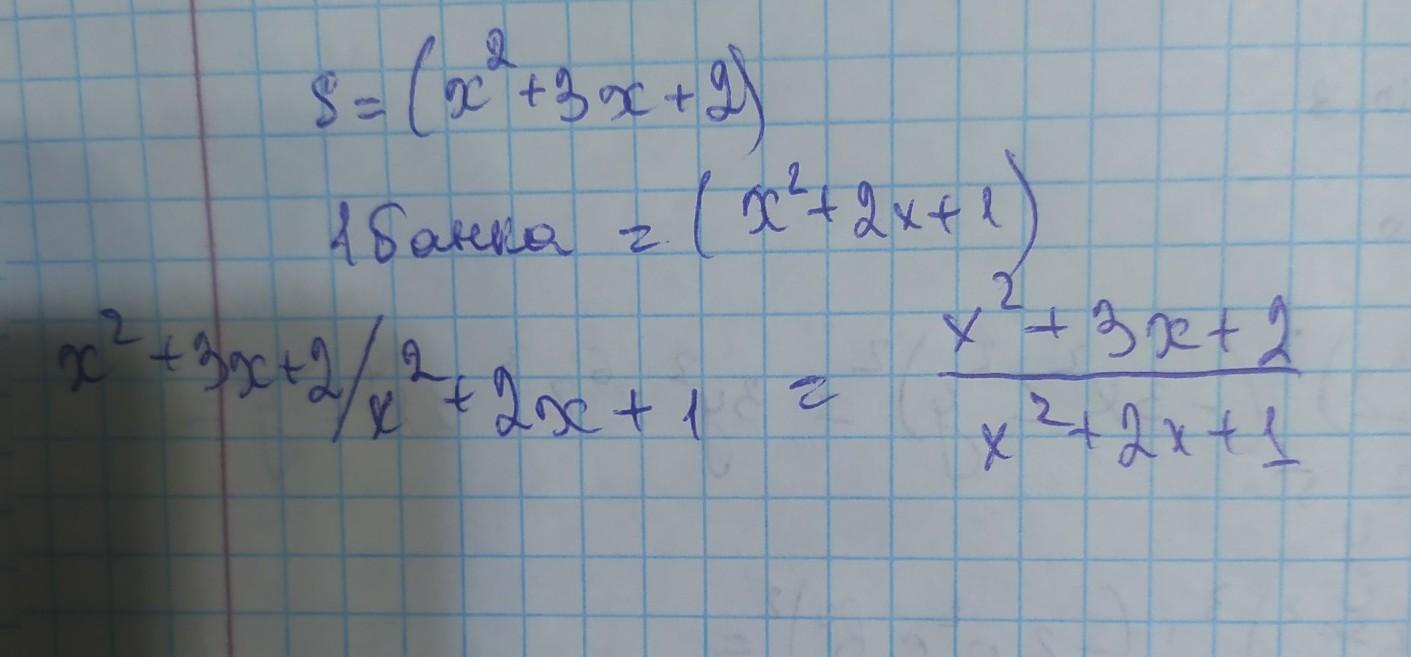 S = (x² + 3x + 2)
1 банка = (x² + 2x + 1)
x² + 3x + 2 / x² + 2x + 1 = x² + 3x + 2 / x² + 2x + 1